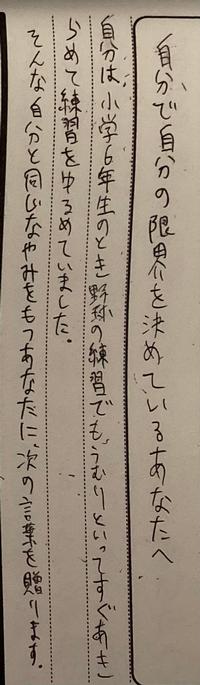 自分で自分の限界を決めているあなたへ
自分は小学6年生のとき野球の練習でもうむりといってすぐあき
らめて練習をゆるめていました。
そんな自分と同じなやみをもつあなたに、次の言葉を贈ります。